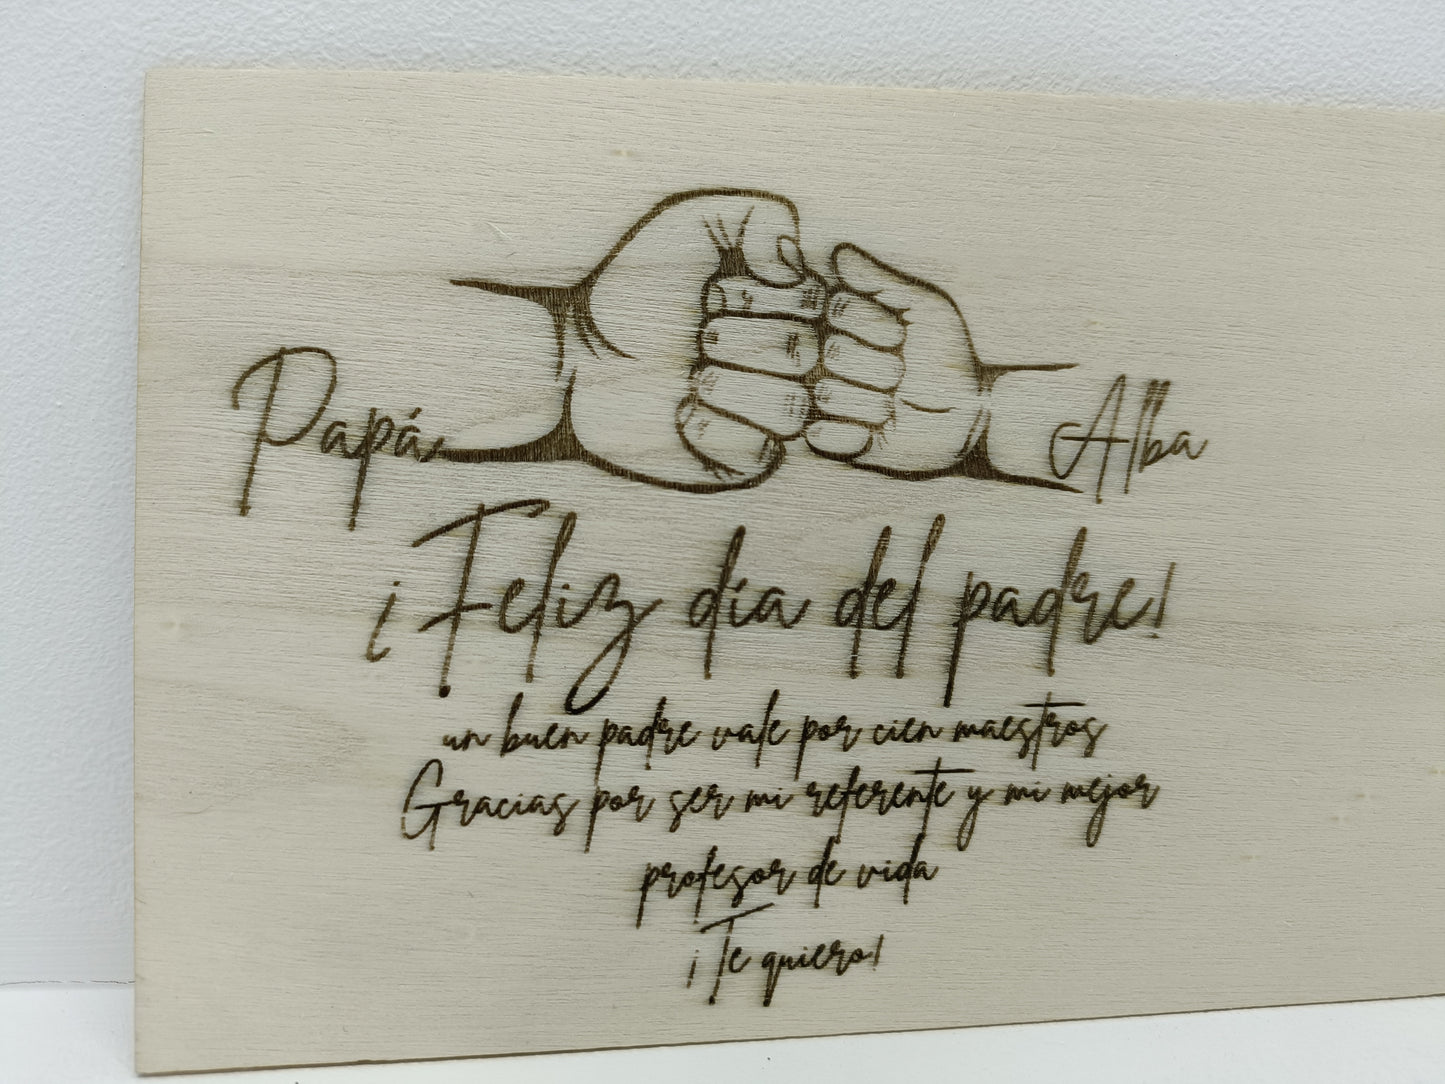 Papá
Alba
¡Feliz día del padre!
un buen padre vale por cien maestros
Gracias por ser mi referente y mi mejor
profesor de vida
¡Te quiero!